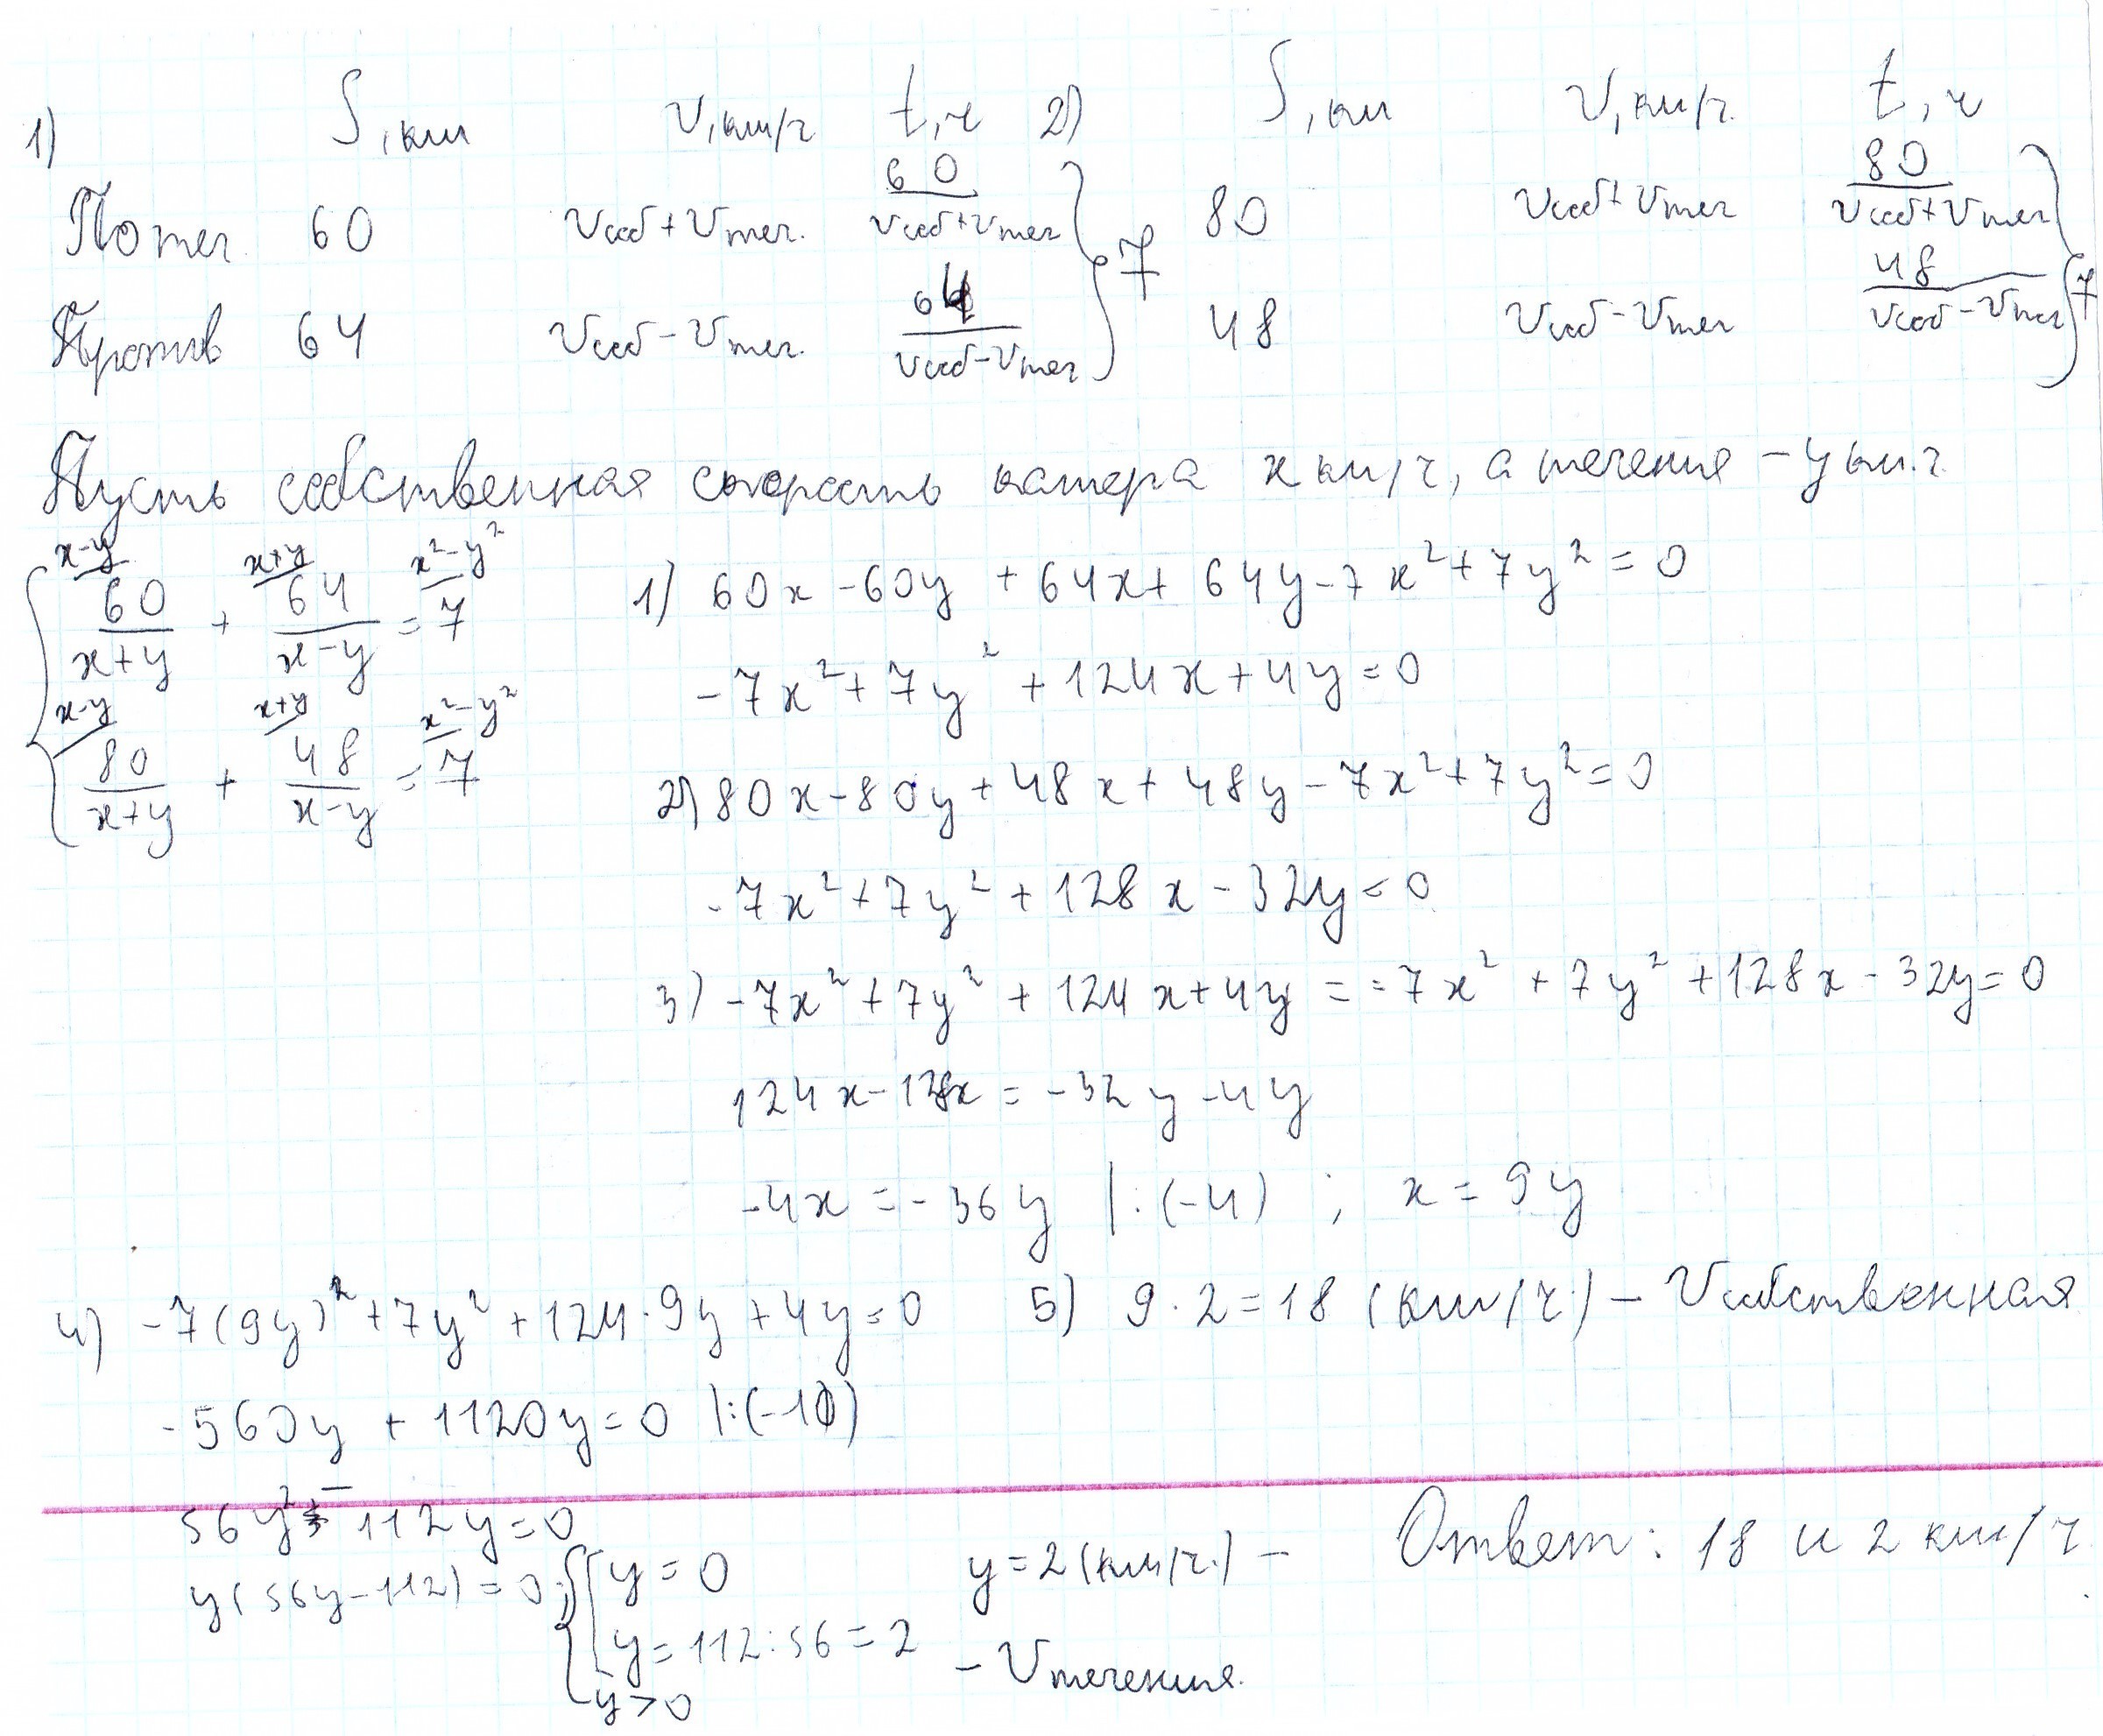 1) S, км v, км/ч t, ч 2) S, км v, км/ч. t, ч
По теч. 60 vсоб + vтеч. 60/(vсоб + vтеч) } 7 80 vсоб + vтеч 80/(vсоб + vтеч) } 7
Против 64 vсоб - vтеч. 64/(vсоб - vтеч) 48 vсоб - vтеч 48/(vсоб - vтеч)
Пусть собственная скорость катера x км/ч, а течения - y км.ч.
{ x-y/ 60/(x+y) + x+y/ 64/(x-y) = x²-y²/ 7
x-y/ 80/(x+y) + x+y/ 48/(x-y) = x²-y²/ 7
1) 60x - 60y + 64x + 64y - 7x² + 7y² = 0
-7x² + 7y² + 124x + 4y = 0
2) 80x - 80y + 48x + 48y - 7x² + 7y² = 0
-7x² + 7y² + 128x - 32y = 0
3) -7x² + 7y² + 124x + 4y = -7x² + 7y² + 128x - 32y = 0
124x - 128x = -32y - 4y
-4x = -36y |:(-4) ; x = 9y
4) -7(9y)² + 7y² + 124·9y + 4y = 0
-560y + 1120y = 0 |:(-10)
56y² - 112y = 0
y(56y - 112) = 0; { [ y = 0
y = 112:56 = 2
y > 0
y = 2 (км/ч.) -
- Vтечения.
5) 9·2 = 18 (км/ч.) - Vсобственная
Ответ: 18 и 2 км/ч.